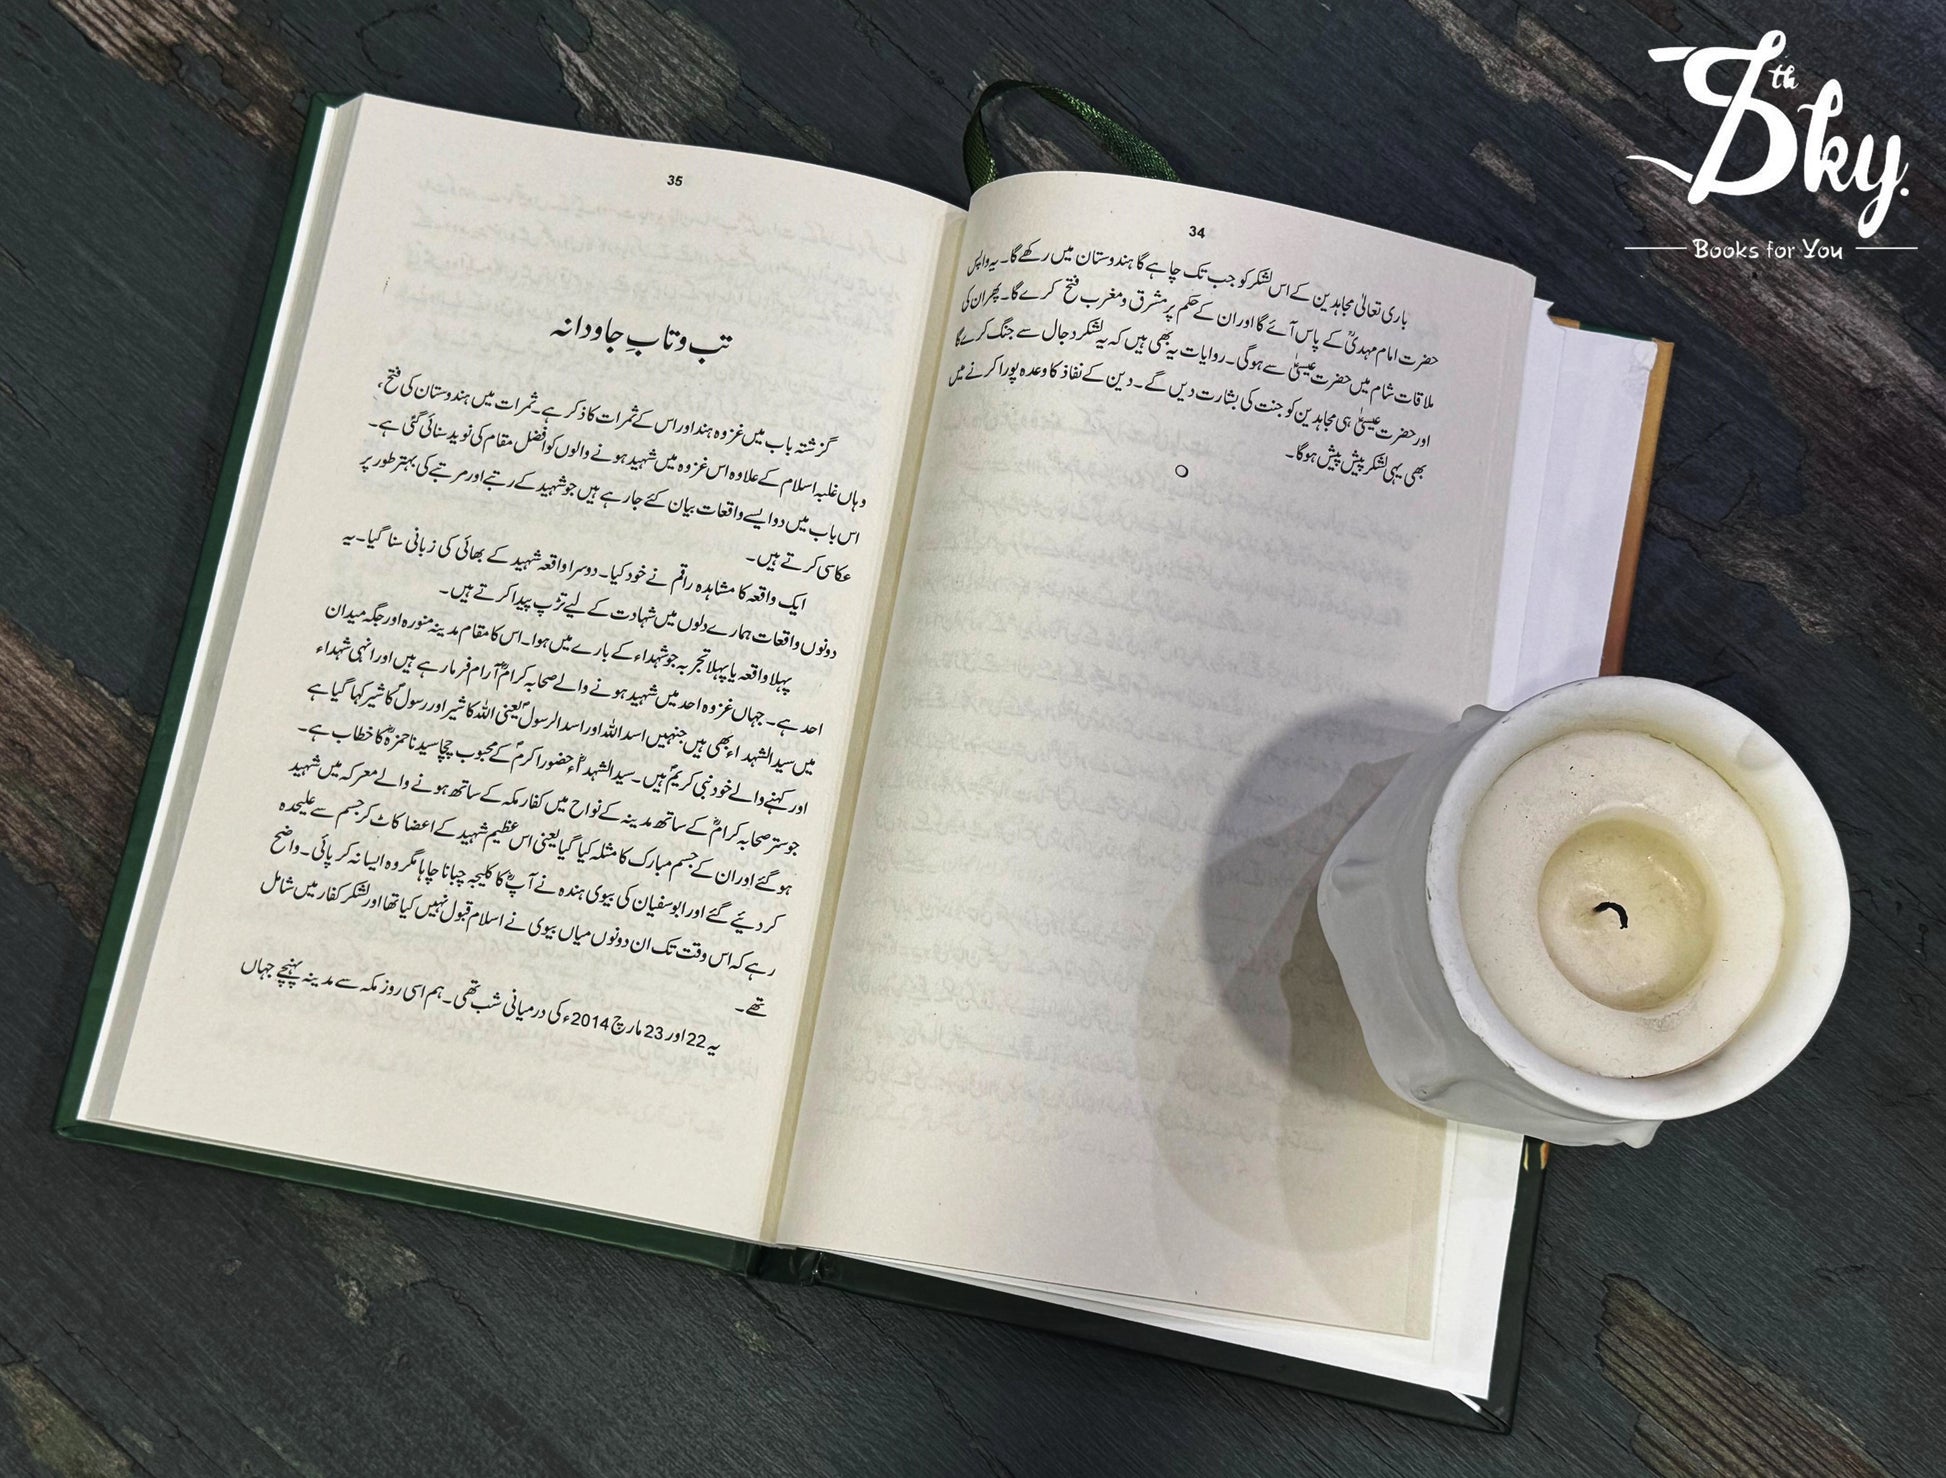 34
باری تعالیٰ مجاہدین کے اس لشکر کو جب تک چاہے گا ہندوستان میں رکھے گا۔ یہ واپس
حضرت امام مہدیؓ کے پاس آئے گا اور ان کے حکم پر مشرق و مغرب فتح کرے گا۔ پھر ان کی
ملاقات شام میں حضرت عیسیٰؑ سے ہوگی۔ روایات یہ بھی ہیں کہ یہ لشکر دجال سے جنگ کرے گا
اور حضرت عیسیٰؑ ہی مجاہدین کو جنت کی بشارت دیں گے۔ دین کے نفاذ کا وعدہ پورا کرنے میں
بھی یہی لشکر پیش پیش ہوگا۔
35
تب و تابِ جاودانہ
گزشتہ باب میں غزوہ ہند اور اس کے ثمرات کا ذکر ہے۔ ثمرات میں ہندوستان کی فتح،
وہاں غلبہ اسلام کے علاوہ اس غزوہ میں شہید ہونے والوں کو افضل مقام کی نوید سنائی گئی ہے۔
اس باب میں دو ایسے واقعات بیان کئے جا رہے ہیں جو شہید کے رتبے اور مرتبے کی بہتر طور پر
عکاسی کرتے ہیں۔
ایک واقعہ کا مشاہدہ راقم نے خود کیا۔ دوسرا واقعہ شہید کے بھائی کی زبانی سنا گیا۔ یہ
دونوں واقعات ہمارے دلوں میں شہادت کے لیے تڑپ پیدا کرتے ہیں۔
پہلا واقعہ یا پہلا تجربہ جو شہداء کے بارے میں ہوا۔ اس کا مقام مدینہ منورہ اور جگہ میدان
احد ہے۔ جہاں غزوہ احد میں شہید ہونے والے صحابہ کرامؓ آرام فرما رہے ہیں اور انہی شہداء
میں سید الشہداء بھی ہیں جنہیں اسد اللہ اور اسد الرسولؐ یعنی اللہ کا شیر اور رسولؐ کا شیر کہا گیا ہے
اور کہنے والے خود نبی کریمؐ ہیں۔ سید الشہداءؓ حضور اکرمؐ کے محبوب چچا سیدنا حمزہؓ کا خطاب ہے۔
جو ستر صحابہ کرامؓ کے ساتھ مدینہ کے نواح میں کفار مکہ کے ساتھ ہونے والے معرکہ میں شہید
ہو گئے اور ان کے جسم مبارک کا مثلہ کیا گیا یعنی اس عظیم شہید کے اعضا کاٹ کر جسم سے علیحدہ
کر دیئے گئے اور ابوسفیان کی بیوی ہندہ نے آپؓ کا کلیجہ چبانا چاہا مگر وہ ایسا نہ کر پائی۔ واضح
رہے کہ اس وقت تک ان دونوں میاں بیوی نے اسلام قبول نہیں کیا تھا اور لشکر کفار میں شامل
تھے۔
یہ 22 اور 23 مارچ 2014ء کی درمیانی شب تھی۔ ہم اسی روز مکہ سے مدینہ پہنچے جہاں
7th Sky.
Books for You